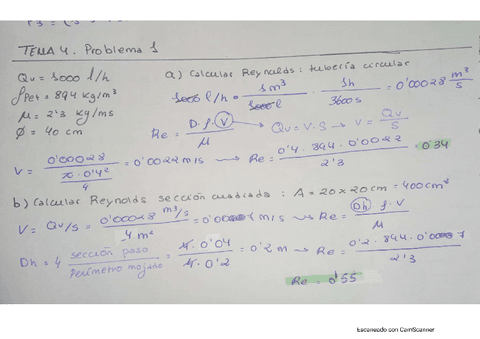 TEMA 4. Problema 1
Qv = 1000 l/h
a) Calcular Reynolds: tubería circular
ρpet = 894 kg/m³
1000 l/h · 1m³/1000 l · 1h/3600s = 0'00028 m³/s
μ = 2'3 kg/ms
φ = 40 cm
Re = D·ρ·V/μ → Qv = V·S → V = Qv/S
V = 0'00028/(π·0'4²/4) = 0'0022 m/s → Re = 0'4·894·0'0022/2'3 = 0'34
b) Calcular Reynolds sección cuadrada: A = 20x20cm = 400cm²
V = Qv/S = 0'00028 m³/s / m² = m/s → Re = Dh·ρ·V/μ
Dh = 4 sección paso/Perímetro mojado = 4·0'04/4·0'2 = 0'2 m → Re = 0'2·894·/2'3
Re = 0'55
Escaneado con CamScanner